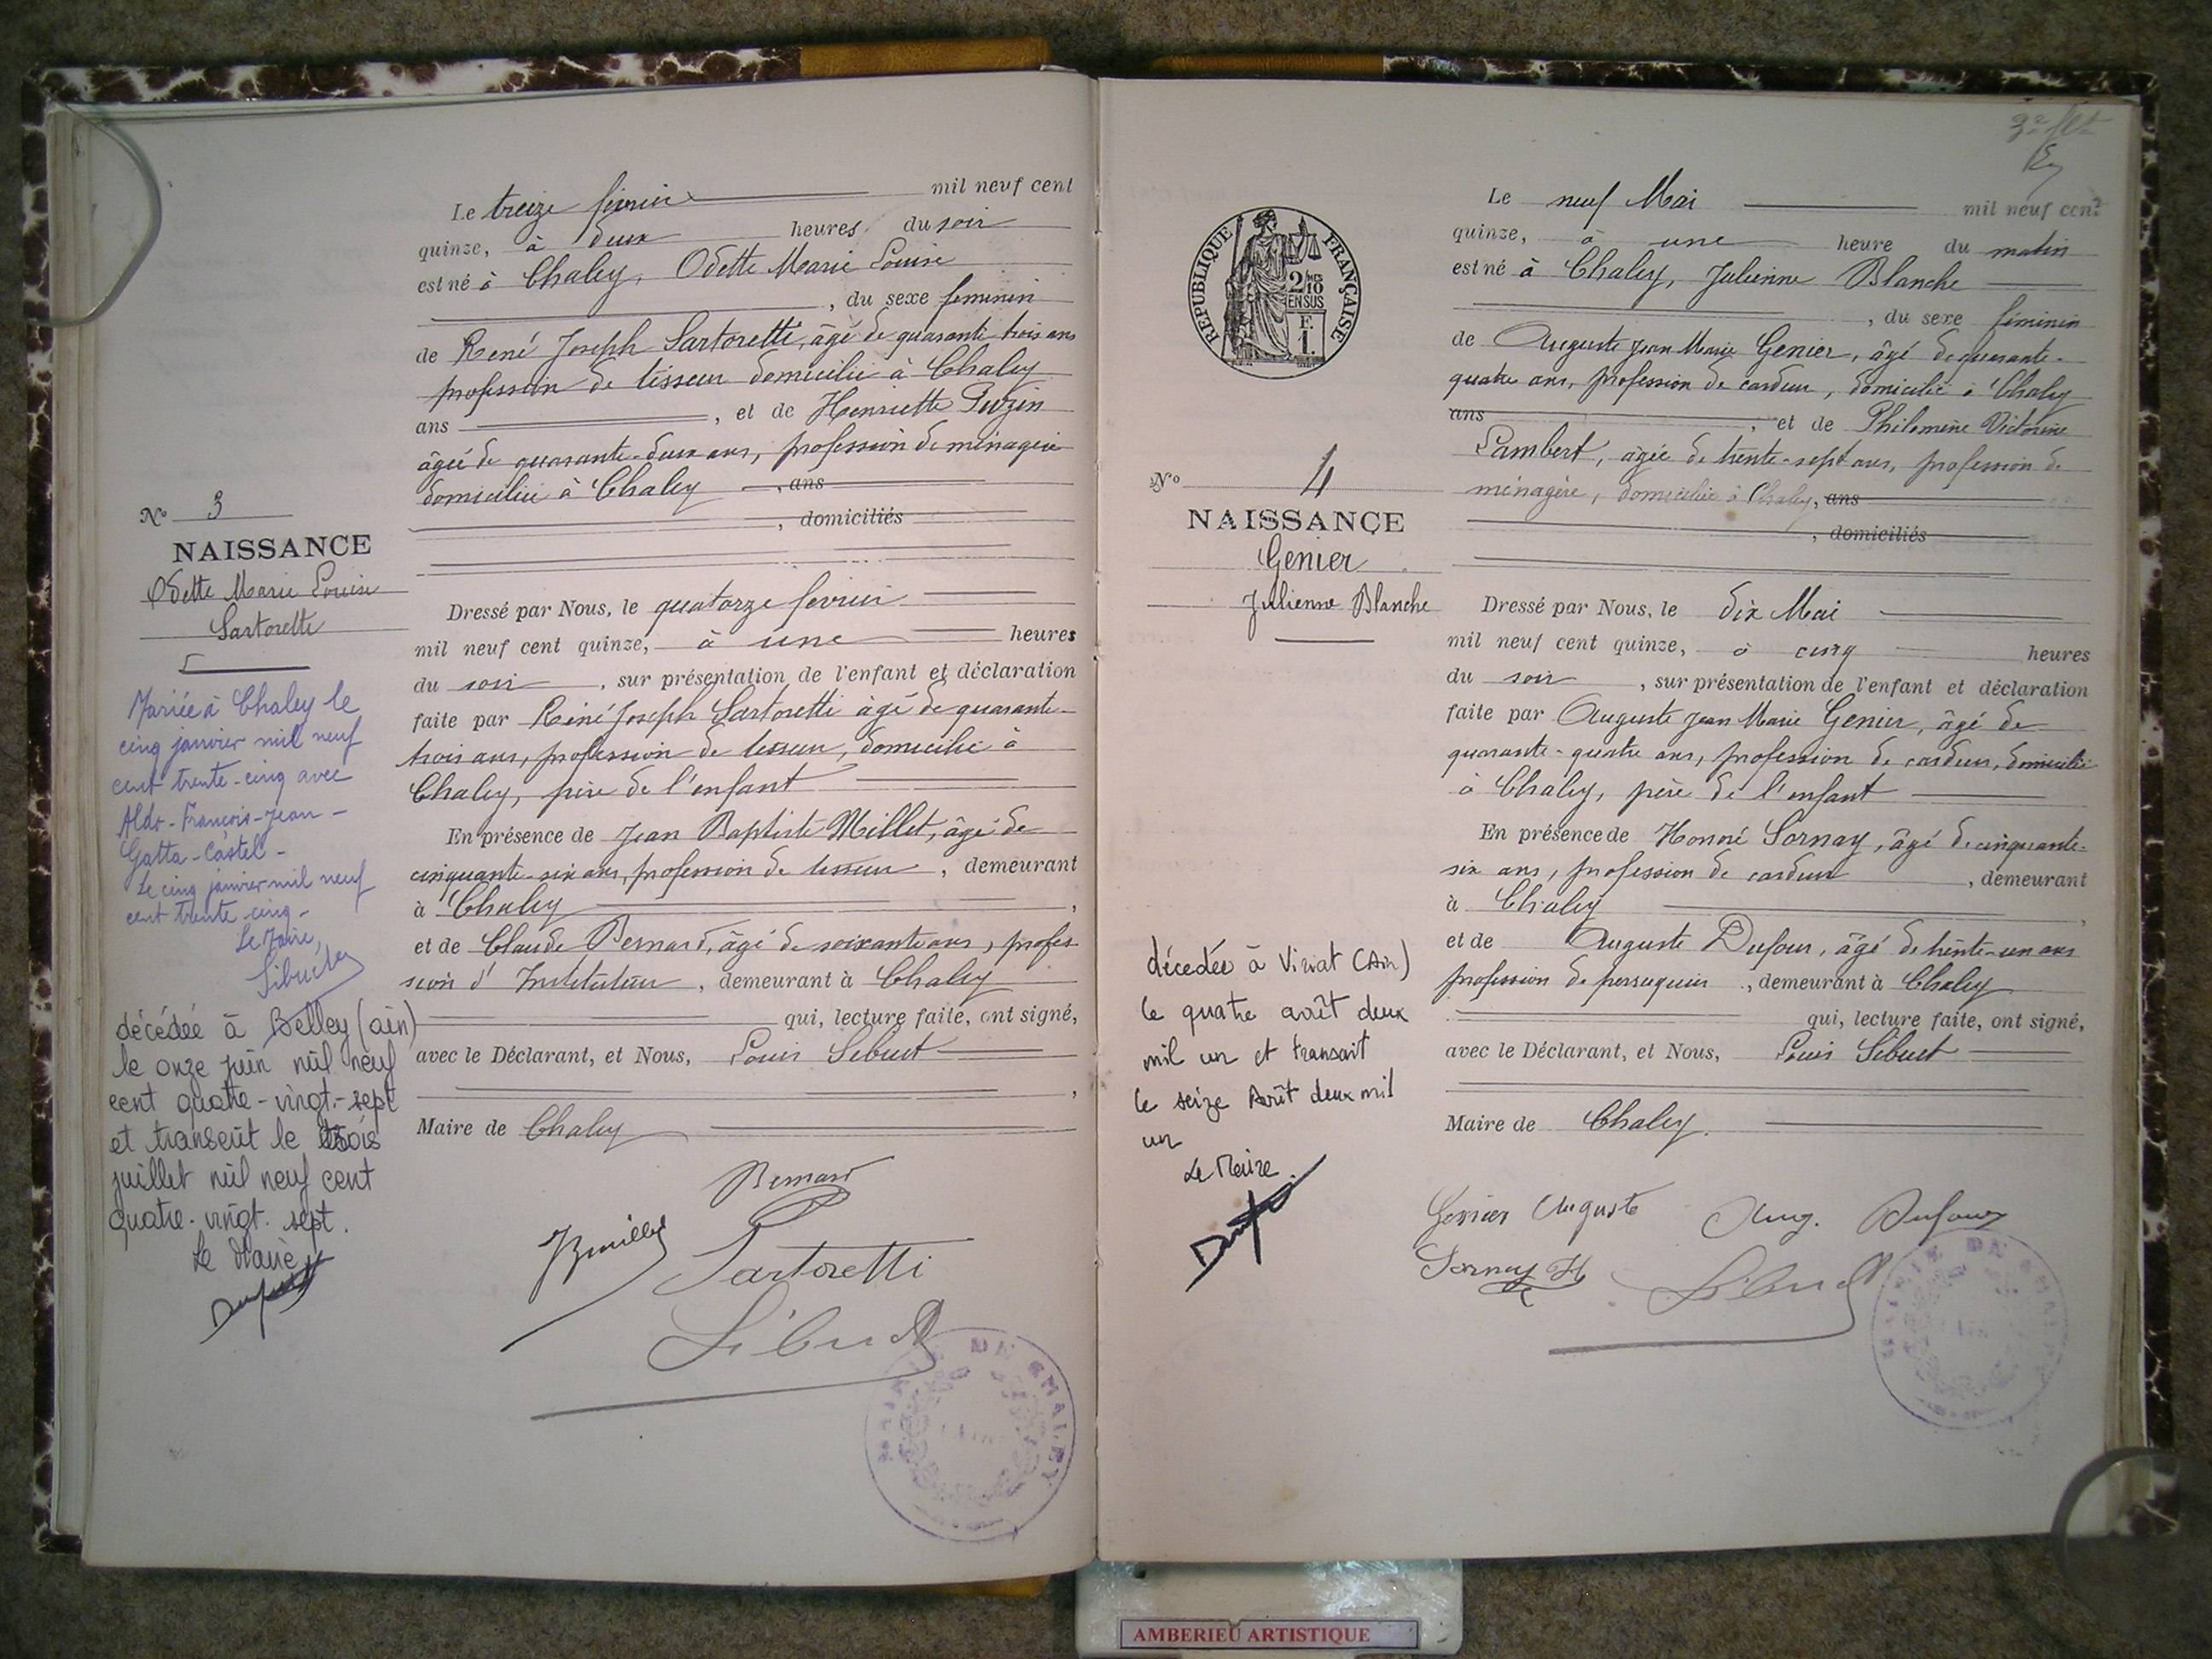 Le treize février mil neuf cent
quinze, à deux heures du soir
est né à Chaley, Odette Marie Louise
, du sexe féminin
de René Joseph Sartoretti, âgé de quarante trois ans
profession de tisseur domicilié à Chaley
ans , et de Henriette Puzin
âgée de quarante-deux ans, profession de ménagère
domiciliée à Chaley , ans
, domiciliés
N° 3
NAISSANCE
Odette Marie Louise
Sartoretti
Dressé par Nous, le quatorze février
mil neuf cent quinze, à une heures
du soir , sur présentation de l'enfant et déclaration
faite par René Joseph Sartoretti âgé de quarante-
trois ans, profession de tisseur, domicilié à
Chaley, père de l'enfant
En présence de Jean Baptiste Millet, âgé de
cinquante-six ans, profession de tisseur , demeurant
à Chaley ,
et de Claude Bernard, âgé de soixante ans, profes
sion d' Instituteur , demeurant à Chaley
qui, lecture faite, ont signé,
avec le Déclarant, et Nous, Louis Sibuet
,
Maire de Chaley
Mariée à Chaley le
cinq janvier mil neuf
cent trente-cinq avec
Aldo-François-Jean-
Gatta-Castel-
Le cinq janvier mil neuf
cent trente-cinq-
Le Maire,
Sibuet
décédée à Belley (ain)
le onze juin mil neuf
cent quatre-vingt-sept
et transcrit le trois
juillet mil neuf cent
quatre-vingt-sept.
Le Maire
Bernard
Sartoretti
Sibuet
MAIRIE DE CHALEY
Le neuf Mai mil neuf cent
quinze, à une heure du matin
est né à Chaley, Julienne Blanche
, du sexe féminin
de Auguste Jean Marie Genier, âgé de quarante-
quatre ans, profession de cardeur, domicilié à Chaley
ans , et de Philomène Victorine
Lambert, âgée de trente-sept ans, profession de
ménagère, domiciliée à Chaley, ans
, domiciliés
RÉPUBLIQUE FRANÇAISE
2/10
EN SUS
F.
1.
N° 4
NAISSANCE
Genier
Julienne Blanche
Dressé par Nous, le dix Mai
mil neuf cent quinze, à cinq heures
du soir , sur présentation de l'enfant et déclaration
faite par Auguste Jean Marie Genier, âgé de
quarante-quatre ans, profession de cardeur, domicilié
à Chaley, père de l'enfant
En présence de Honoré Sornay, âgé de cinquante-
six ans, profession de cardeur , demeurant
à Chaley ,
et de Auguste Dufour, âgé de trente-un ans
profession de perruquier , demeurant à Chaley
qui, lecture faite, ont signé,
avec le Déclarant, et Nous, Louis Sibuet
Maire de Chaley.
décédée à Viriat (Ain)
le quatre août deux
mil un et transcrit
le seize Août deux mil
un
Le Maire.
Genier Auguste Aug. Dufour
Sornay H
Sibuet
MAIRIE DE CHALEY
AMBERIEU ARTISTIQUE